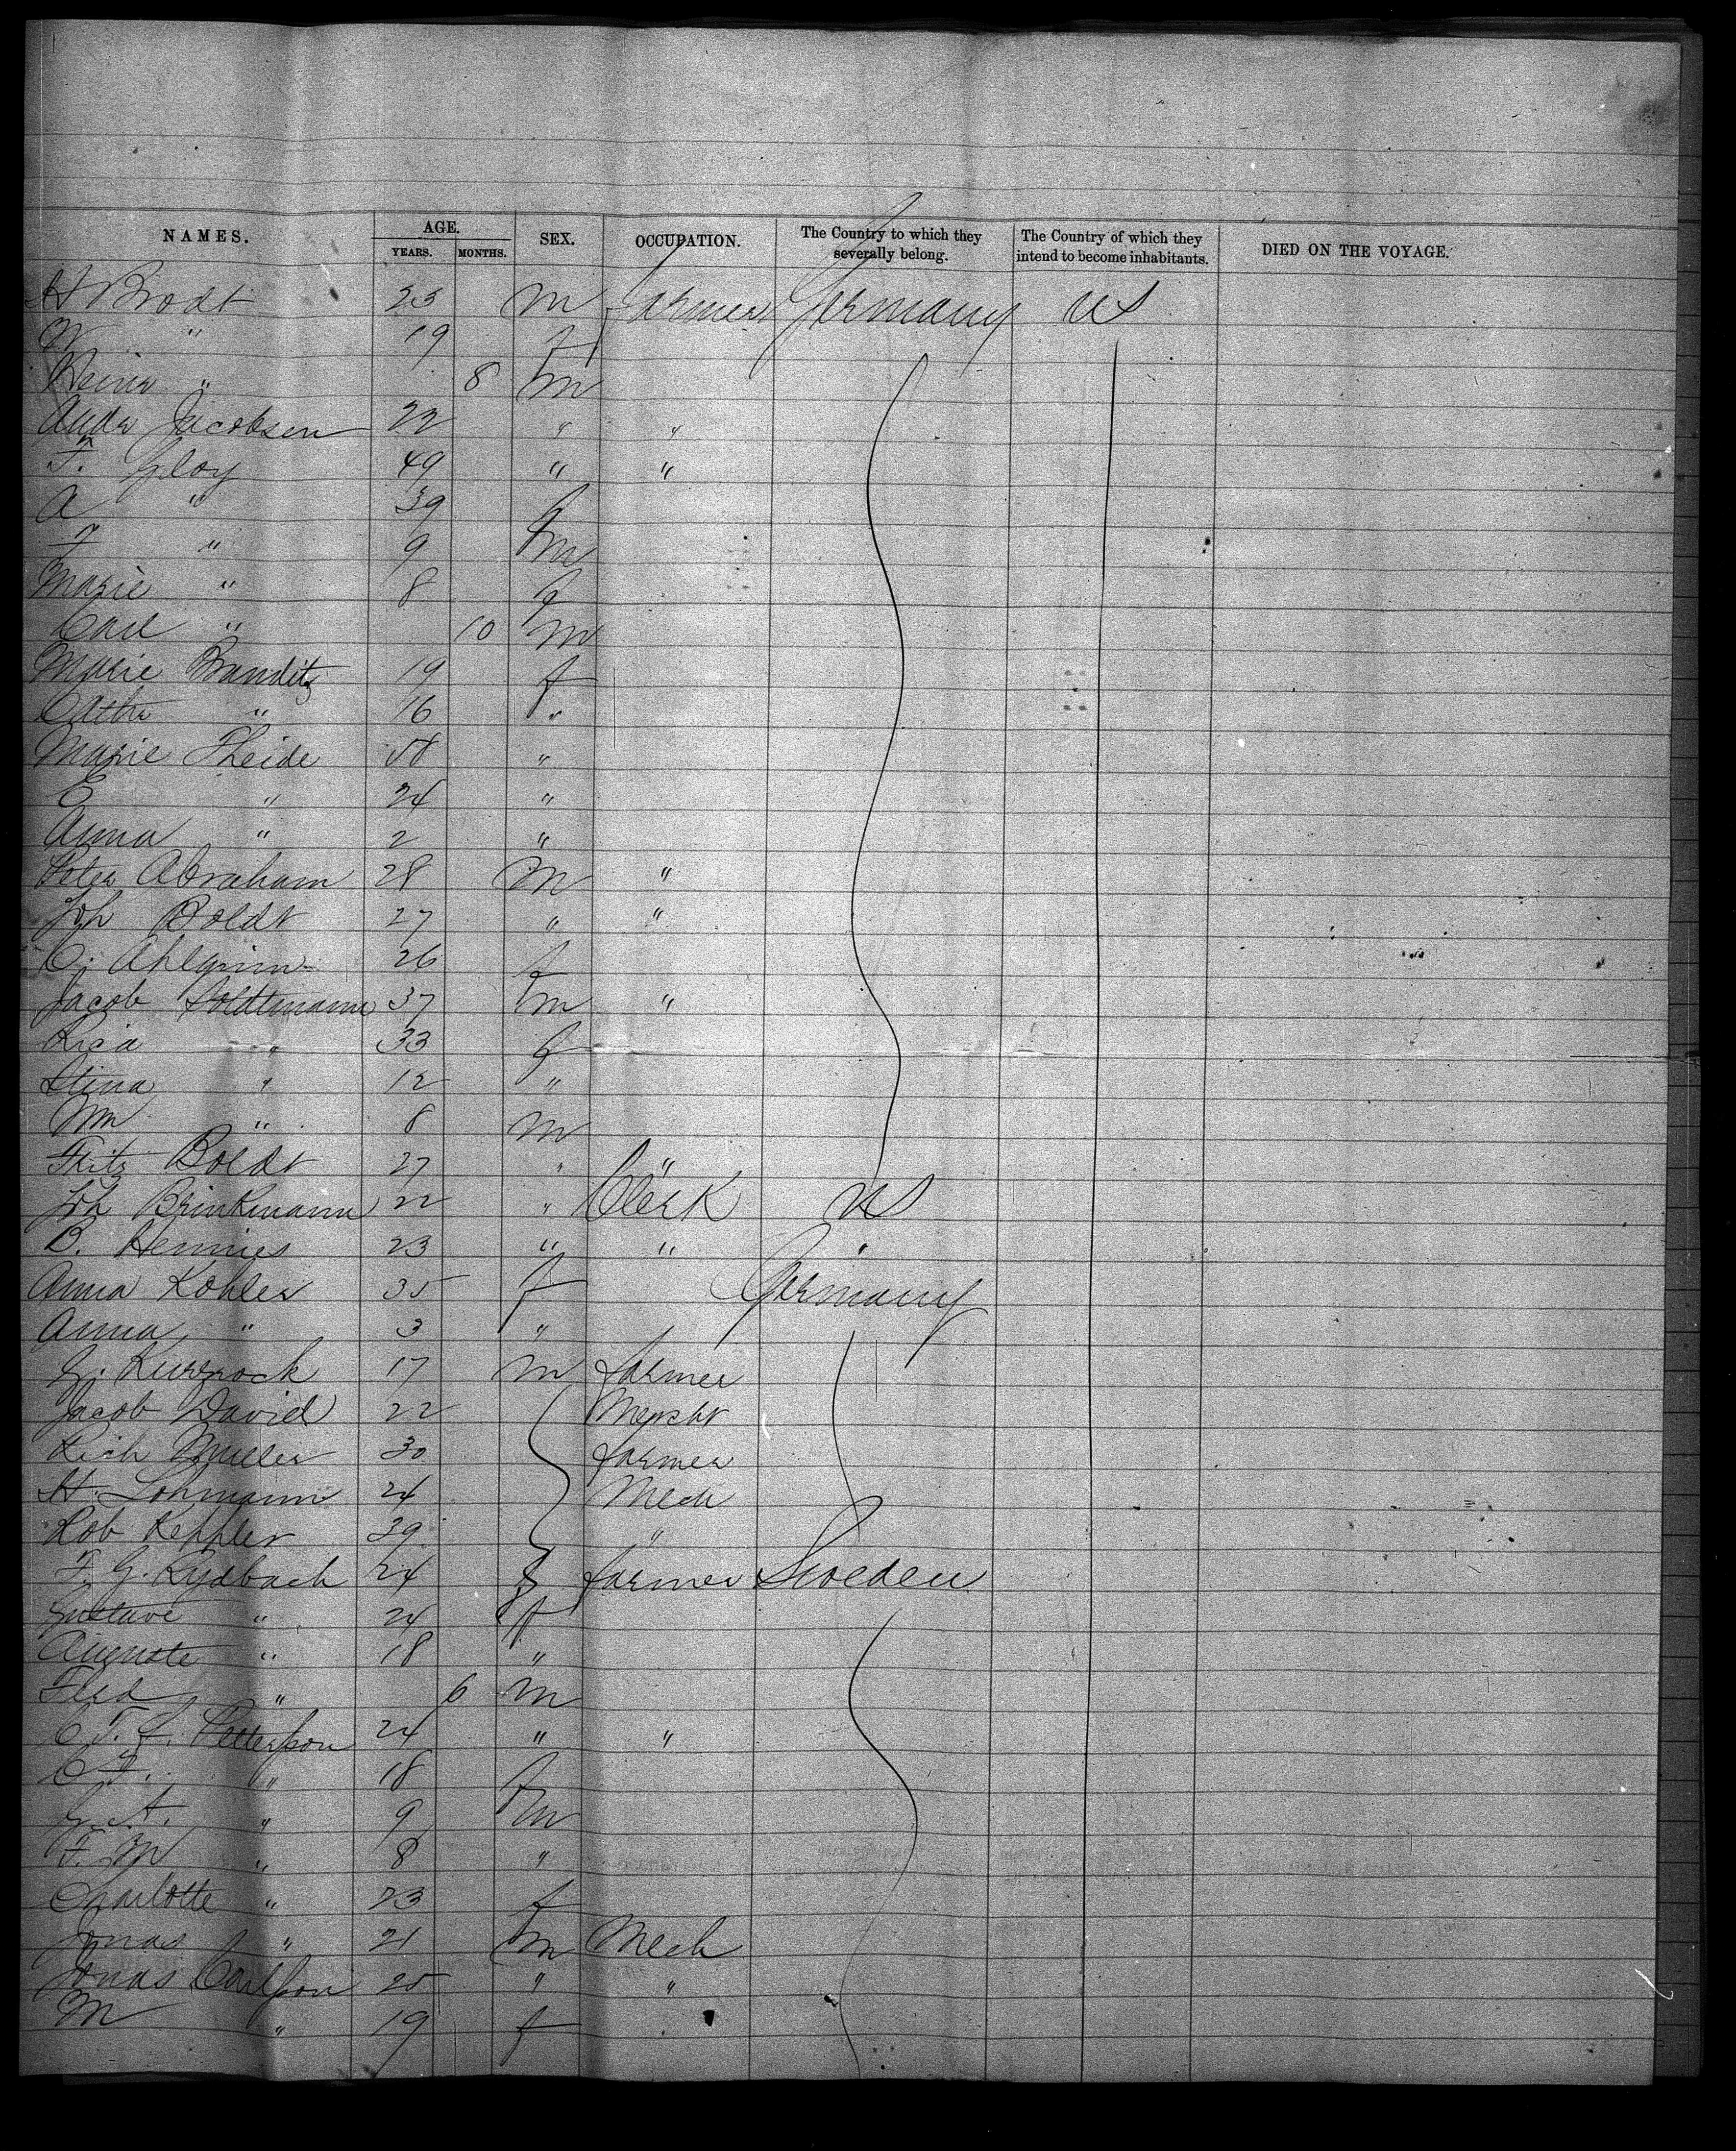 NAMES. AGE. SEX. OCCUPATION. The Country to which they severally belong. The Country of which they intend to become inhabitants. DIED ON THE VOYAGE.
YEARS. MONTHS.
H Brodt 23 m farmer Germany US
W " 19 f
Heinr " 8 m
Andr Jacobsen 22 " "
F. Gloy 49 " "
A " 39 f
F " 9 m
Marie " 8 f
Carl " 10 m
Marie Banditz 19 f
Cathr " 16 "
Marie Theide 58 "
E " 24 "
Anna " 2 "
Peter Abraham 28 m "
Joh Boldt 27 " "
C. Ahlgrim 26 f
Jacob Soldtmann 37 m "
Rica " 33 f
Stina " 12 "
Wm " 8 m
Fritz Boldt 27 " "
Joh Brinkmann 22 " Clerk US
B. Hennies 23 " " "
Anna Kohler 35 f Germany
Anna " 3 "
G. Kurzrock 17 m farmer
Jacob David 22 Mercht
Rich Muller 30 farmer
H. Lohmann 24 Mech
Rob Keppler 39 "
F. G. Rydbach 24 farmer Sweden
Gustave " 24 f
Auguste " 18 "
Fred " 6 m
C F. Petterson 24 " "
C F. " 18 f
G. A. " 9 m
F. M " 8 "
Charlotte " 23 f
Jonas " 21 m Mech
Jonas Carlson 25 " "
M " 19 f